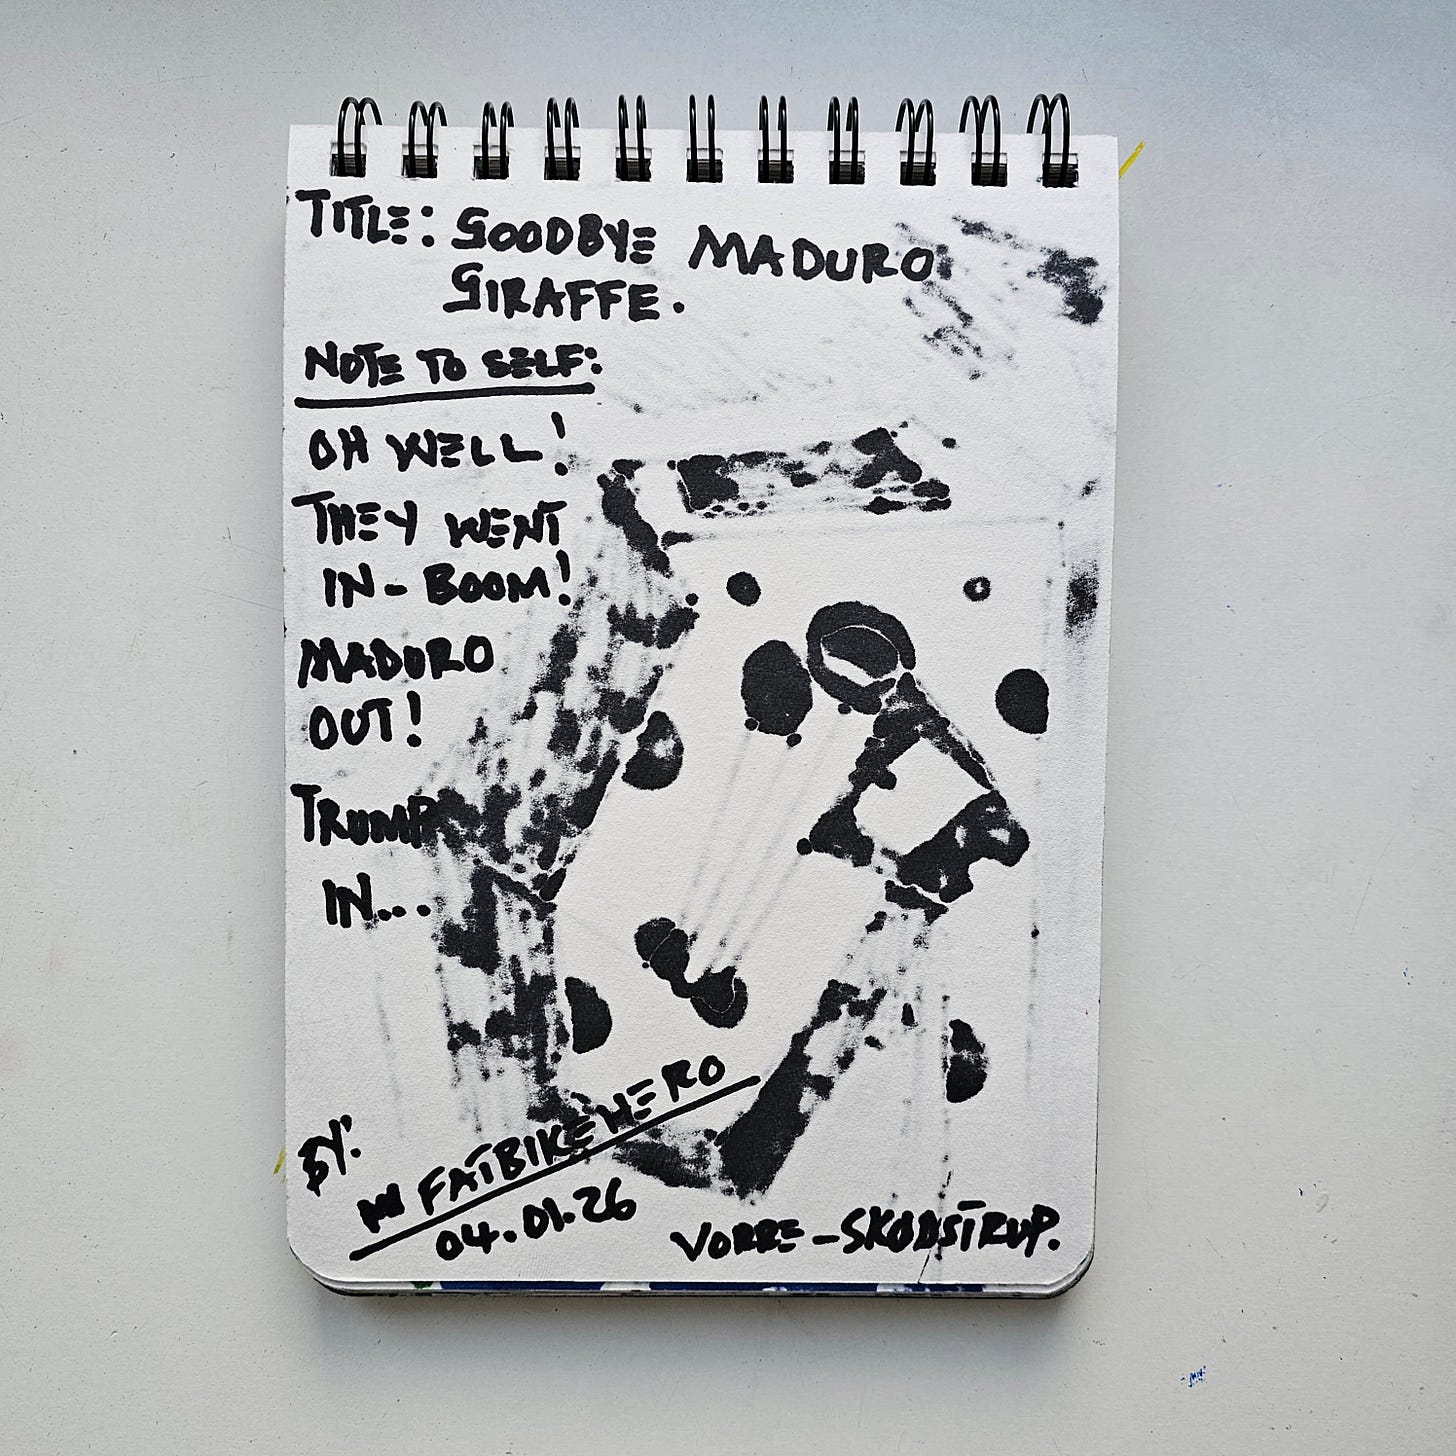 TITLE: GOODBYE MADURO
GIRAFFE.
NOTE TO SELF:
OH WELL!
THEY WENT
IN - BOOM!
MADURO
OUT!
TRUMP
IN...
BY:
FATBIKEHERO
04.01.26
VORRE - SKØDSTRUP.